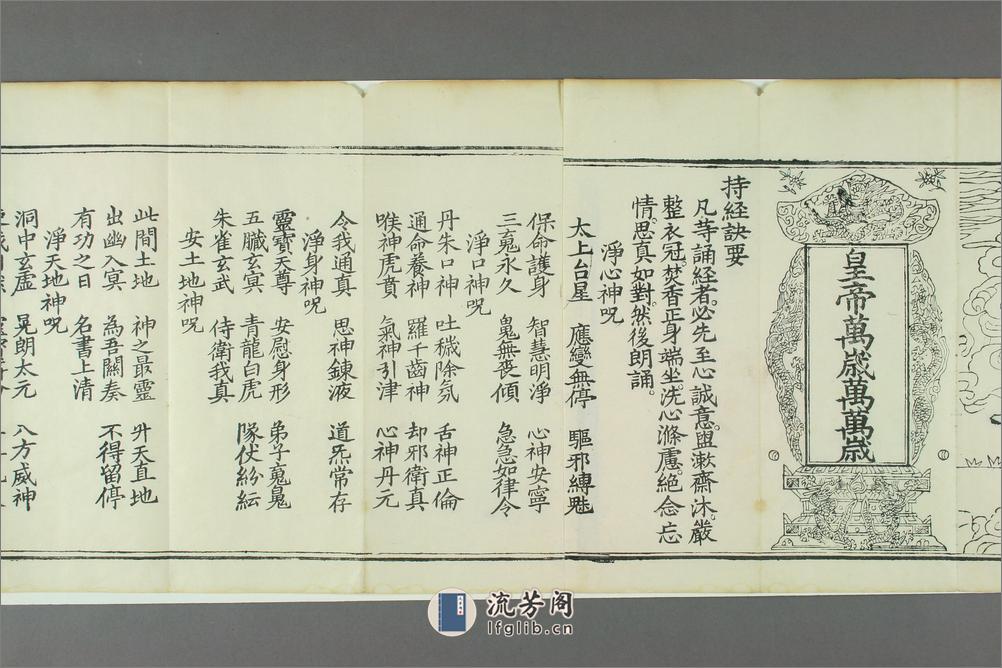 皇帝萬歲萬萬歲
持經訣要
凡等誦經者必先至心誠意盥漱齋沐嚴
整衣冠焚香正身端坐洗心滌慮絕念忘
情思真如對然後朗誦
淨心神呪
太上台星 應變無停 驅邪縛魅
保命護身 智慧明淨 心神安寧
三䰟永久 䰟無喪傾 急急如律令
淨口神呪
丹朱口神 吐穢除氛 舌神正倫
通命養神 羅千齒神 却邪衛真
喉神虎賁 氣神引津 心神丹元
令我通真 思神鍊液 道炁常存
淨身神呪
靈寶天尊 安慰身形 弟子䰟
五臟玄冥 青龍白虎 隊仗紛紜
朱雀玄武 侍衛我真
安土地神呪
此間土地 神之最靈 升天直地
出幽入冥 為吾關奏 不得留停
有功之日 名書上清
淨天地神呪
洞中玄虛 晃朗太元 八方威神
流芳阁
lfglib.cn